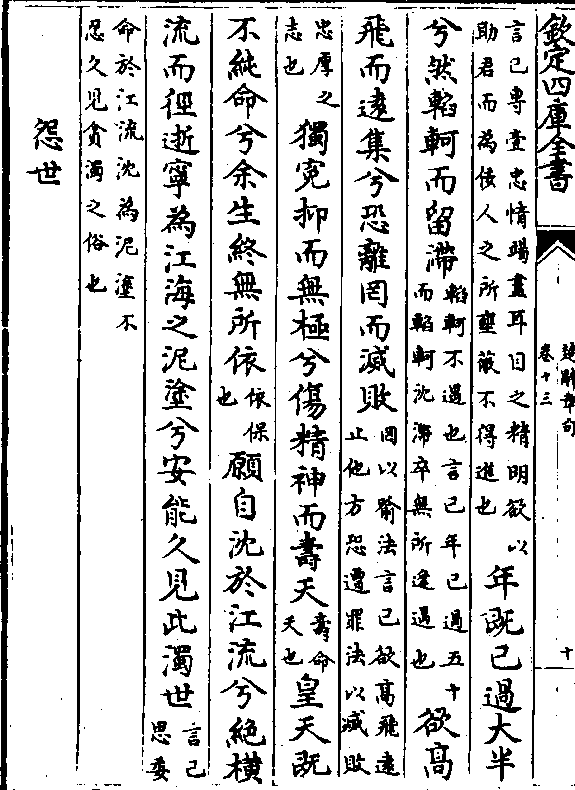 欽定四庫全書
楚辭章句
卷十三
十
言已專壹忠情竭盡耳目之精明欲以
助君而為佞人之所壅蔽不得進也
年既已過太半
兮然輡軻而留滯
輡軻不遇也言已年已過五十
而輡軻沈滯卒無所逢遇也
欲高
飛而遠集兮恐離罔而滅敗
罔以喻法言已欲高飛遠
止他方恐遭罪法以滅敗
忠厚之
志也
獨冤抑而無極兮傷精神而壽夭
壽命
夭也
皇天既
不純命兮余生終無所依
依保
也
願自沈於江流兮絕橫
流而徑逝寧為江海之泥塗兮安能久見此濁世
言已
思委
命於江流沈為泥塗不
忍久見貪濁之俗也
怨世